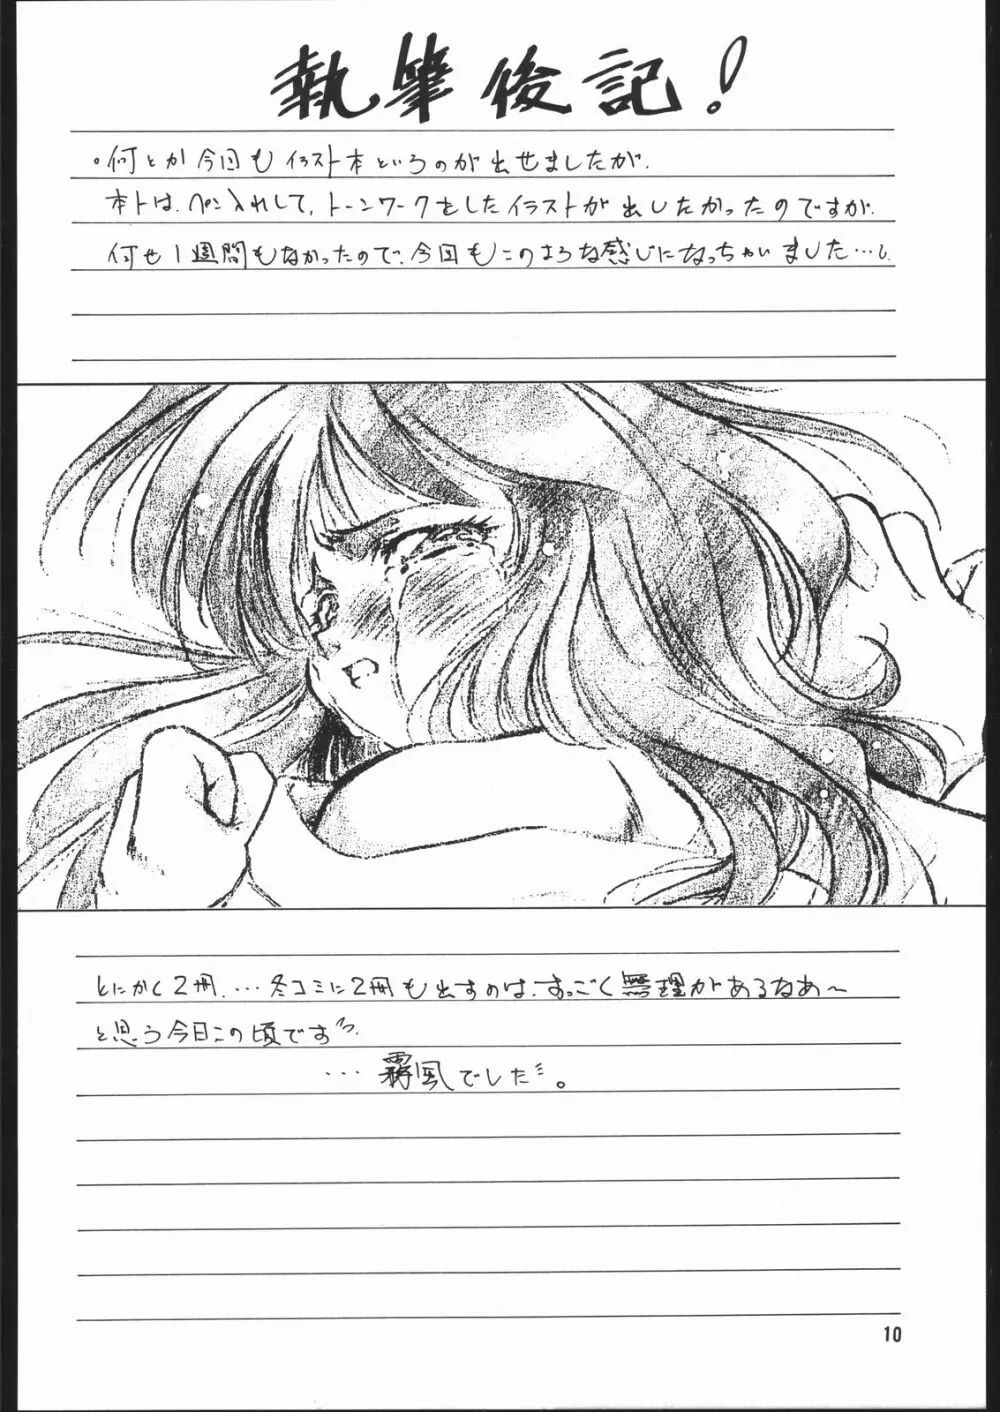 執筆後記!
。何とか今回もイラスト本というのが出せましたが.
本トは、ペン入れして、トーンワークをしたイラストが出したかったのですが.
何せ1週間もなかったので、今回もこのような感じになっちゃいました…。
とにかく2冊.…冬コミに2冊も出すのは、すっごく無理があるなあ〜
と思う今日この頃です
…霧風でした。
10